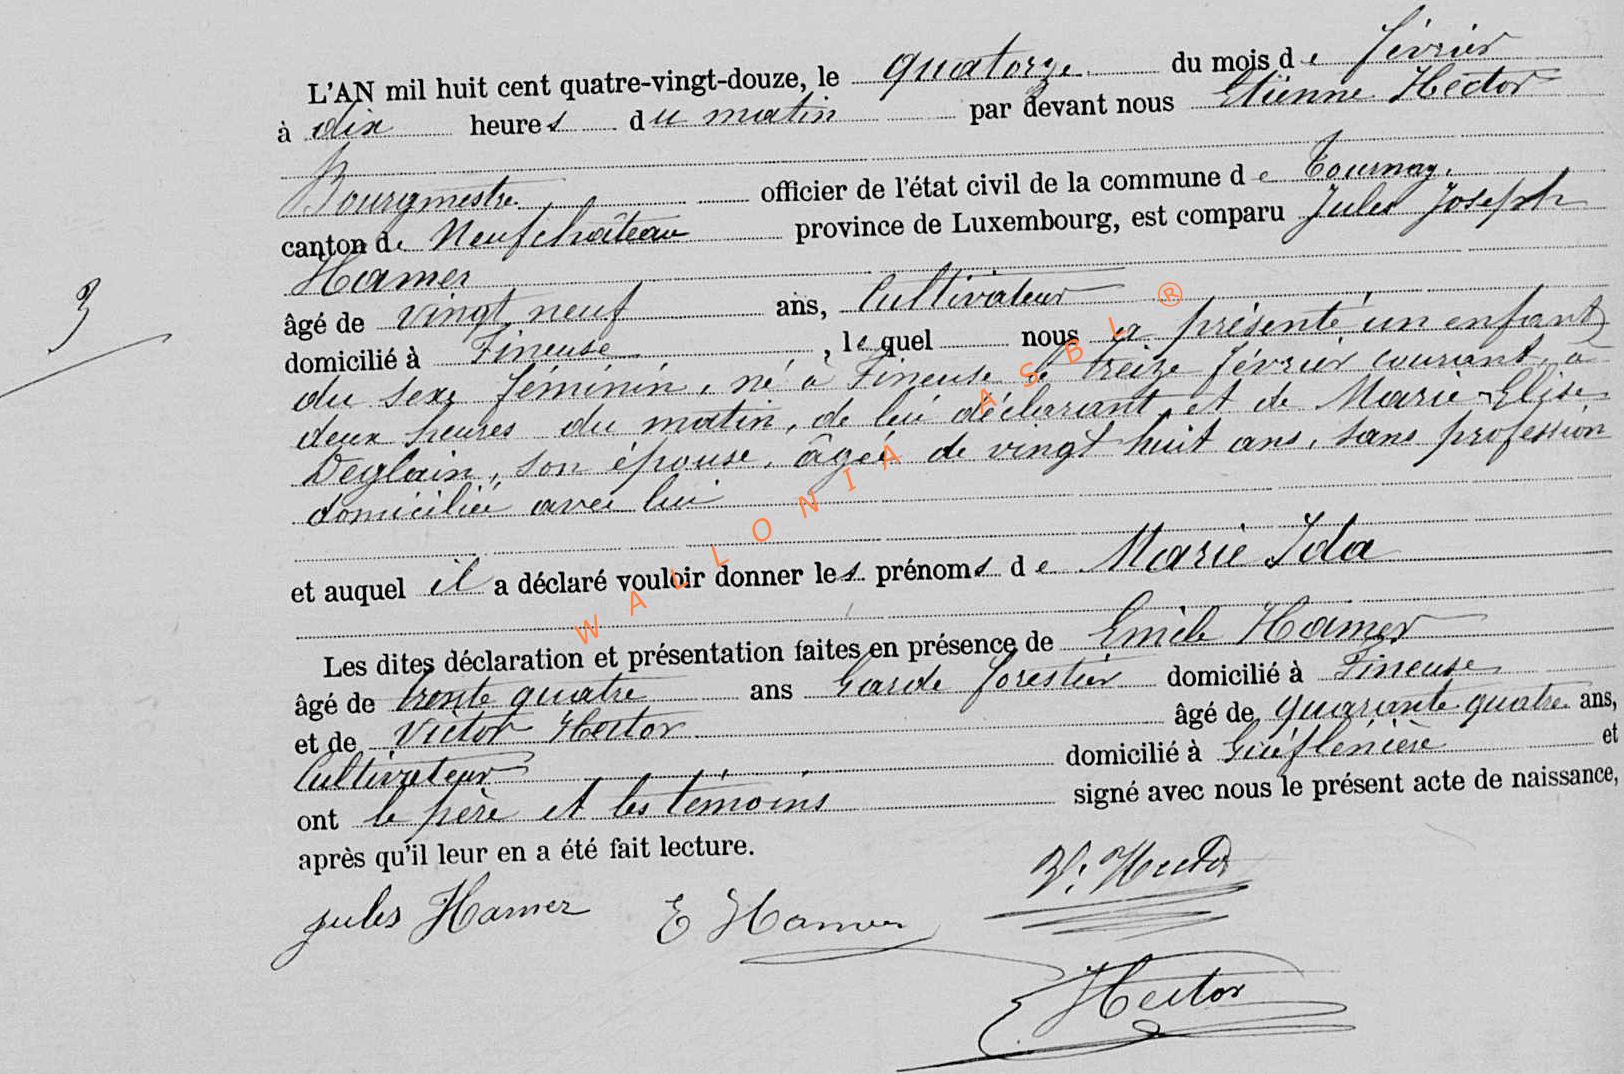 L'AN mil huit cent quatre-vingt-douze, le quatorze du mois de février
à dix heures du matin par devant nous Etienne Hector
Bourgmestre officier de l'état civil de la commune de Tournay,
canton de Neufchâteau province de Luxembourg, est comparu Jules Joseph
Hamer
âgé de vingt neuf ans, Cultivateur
domicilié à Fineuse, lequel nous a présenté un enfant
du sexe féminin, né à Fineuse le treize février courant, à
deux heures du matin, de lui déclarant et de Marie-Elise
Deglain, son épouse, âgée de vingt huit ans, sans profession
domiciliée avec lui
et auquel il a déclaré vouloir donner les prénoms de Marie Ida
Les dites déclaration et présentation faites en présence de Emile Hamer
âgé de trente quatre ans Garde forestier domicilié à Fineuse
et de Victor Hector âgé de quarante quatre ans,
Cultivateur domicilié à et
ont le père et les témoins signé avec nous le présent acte de naissance,
après qu'il leur en a été fait lecture.
3
Jules Hamer E Hamer V. Hector
Hector
WALLONIA ASBL ®